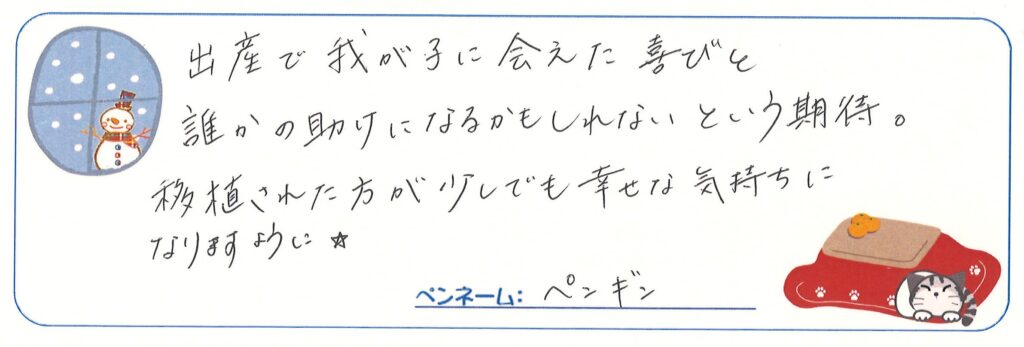 出産で我が子に会えた喜びと
誰かの助けになるかもしれないという期待。
移植された方が少しでも幸せな気持ちに
なりますように☆
ペンネーム: ペンギン